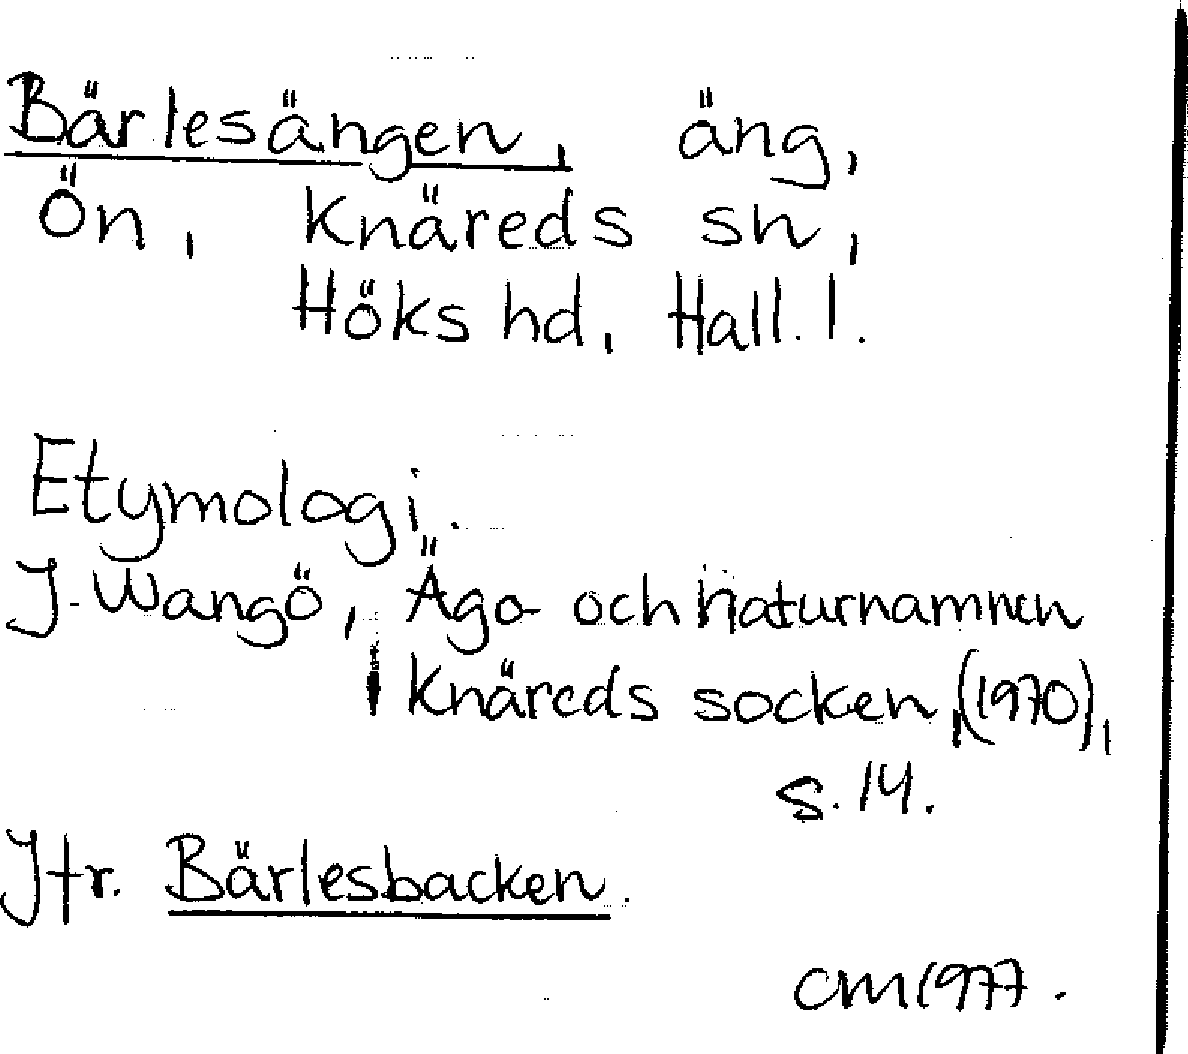 Bärlesängen, äng,
Ön, Knäreds sn,
Höks hd, Hall. l.
Etymologi.
J. Wangö, Ägo- och naturnamnen
i Knäreds socken, (1970),
s. 14.
Jfr. Bärlesbacken.
CM 1977.